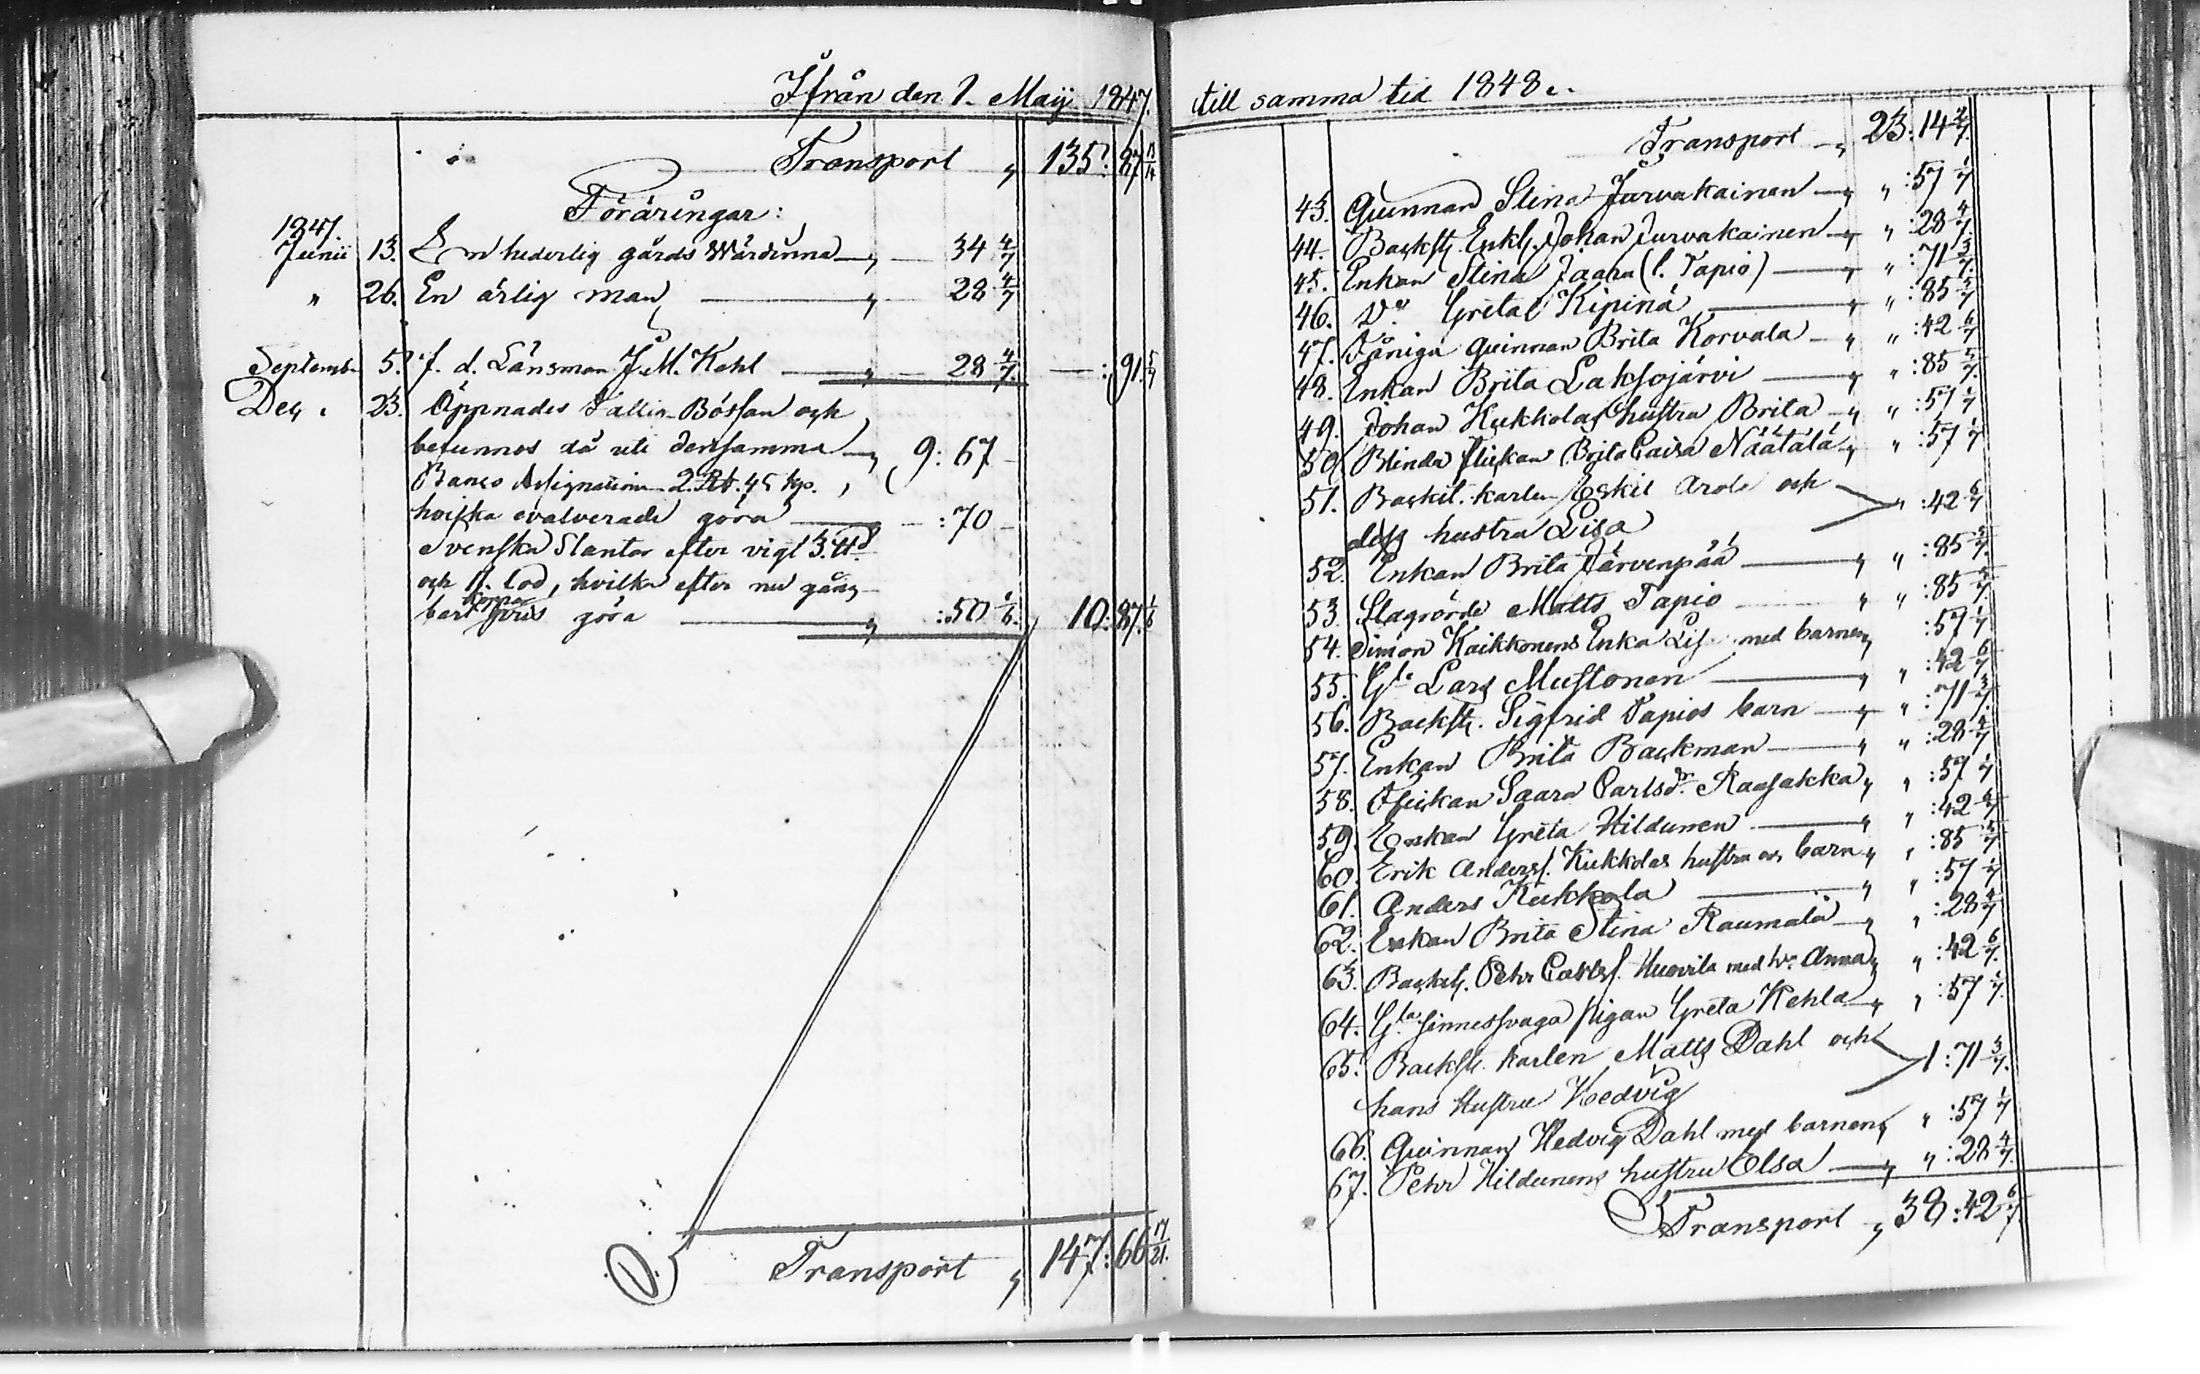 Ifrån den 1. Maij 1847.
Transport „ 135: 87 11/14
Föräringar:
1847.
Junii 13. En hederlig gårds Wärdinna — „ — 34 4/7
„ 26. En ärlig man — „ — 28 4/7
Septemb. 5. f. d. Länsman J. M. Kehl — „ — 28 4/7. — : 91. 5/7
Dec. 23. Öppnades Fattig-Bössan och
befunnos då uti densamma — „ 9: 67 —
Banco Assignation 2. Rd. 45 kp.
hvilka evalverade göra — „ — :70 —
svenska Slantar efter vigt 3. ℔
och 11. lod, hvilka efter nu gång-
bart koppar pris göra — „ :50 1/6. 10: 87. 1/6
Transport „ 147: 66 17/21.
till samma tid 1848..
Transport — „ 23: 14 2/7.
43. Quinnan Stina Jurvakainen — „ „ :57 1/7
44. Backst. Enkl. Johan Jurvakainen — „ „ :28 4/7.
45. Enkan Stina Jaara (l. Tapio) — „ „ :71 3/7.
46. Do Greta Kipinä — „ „ :85 5/7
47. Fåniga Quinnan Brita Korvala — „ „ :42 6/7
48. Enkan Brita Laksojärvi — „ „ :85 5/7.
49. Johan Kukkolas hustru Brita — „ „ :57 1/7
50. Blinda flickan Brita Caisa Näätälä „ „ :57 1/7
51. Backst. karlen Eskil Arola och
dess hustru Lisa „ :42 6/7
52. Enkan Brita Järvenpää — „ „ :85 5/7.
53. Slagrörde Matts Tapio — „ „ :85 5/7.
54. Simon Kaikkonens Enka Lisa med barnen „ :57 1/7
55. Gle Lars Mustonen — „ „ :42 6/7
56. Backst. Sigfrid Tapios barn — „ „ :71 3/7.
57. Enkan Brita Backman — „ „ :28 4/7
58. Flickan Saara Carlsdr. Raasakka „ „ :57 1/7
59. Enkan Greta Hildunen — „ „ :42 6/7
60. Erik Anderss. Kukkolas hustru och barn „ „ :85 5/7
61. Anders Kukkola — „ „ :57 1/7
62. Enkan Brita Stina Raumala — „ „ :28 4/7
63. Backst. Pehr Carlss. Huovila med h. Anna „ „ :42 6/7.
64. Gla sinnessvaga pigan Greta Kehla — „ „ :57 1/7.
65. Backst. karlen Matts Dahl och
hans Hustru Hedvig 1: 71 3/7.
66. Quinnan Hedvig Dahl med barnen „ „ :57 1/7
67. Pehr Hildunens hustru Elsa — „ „ :28 4/7.
Transport „ 38: 42 6/7